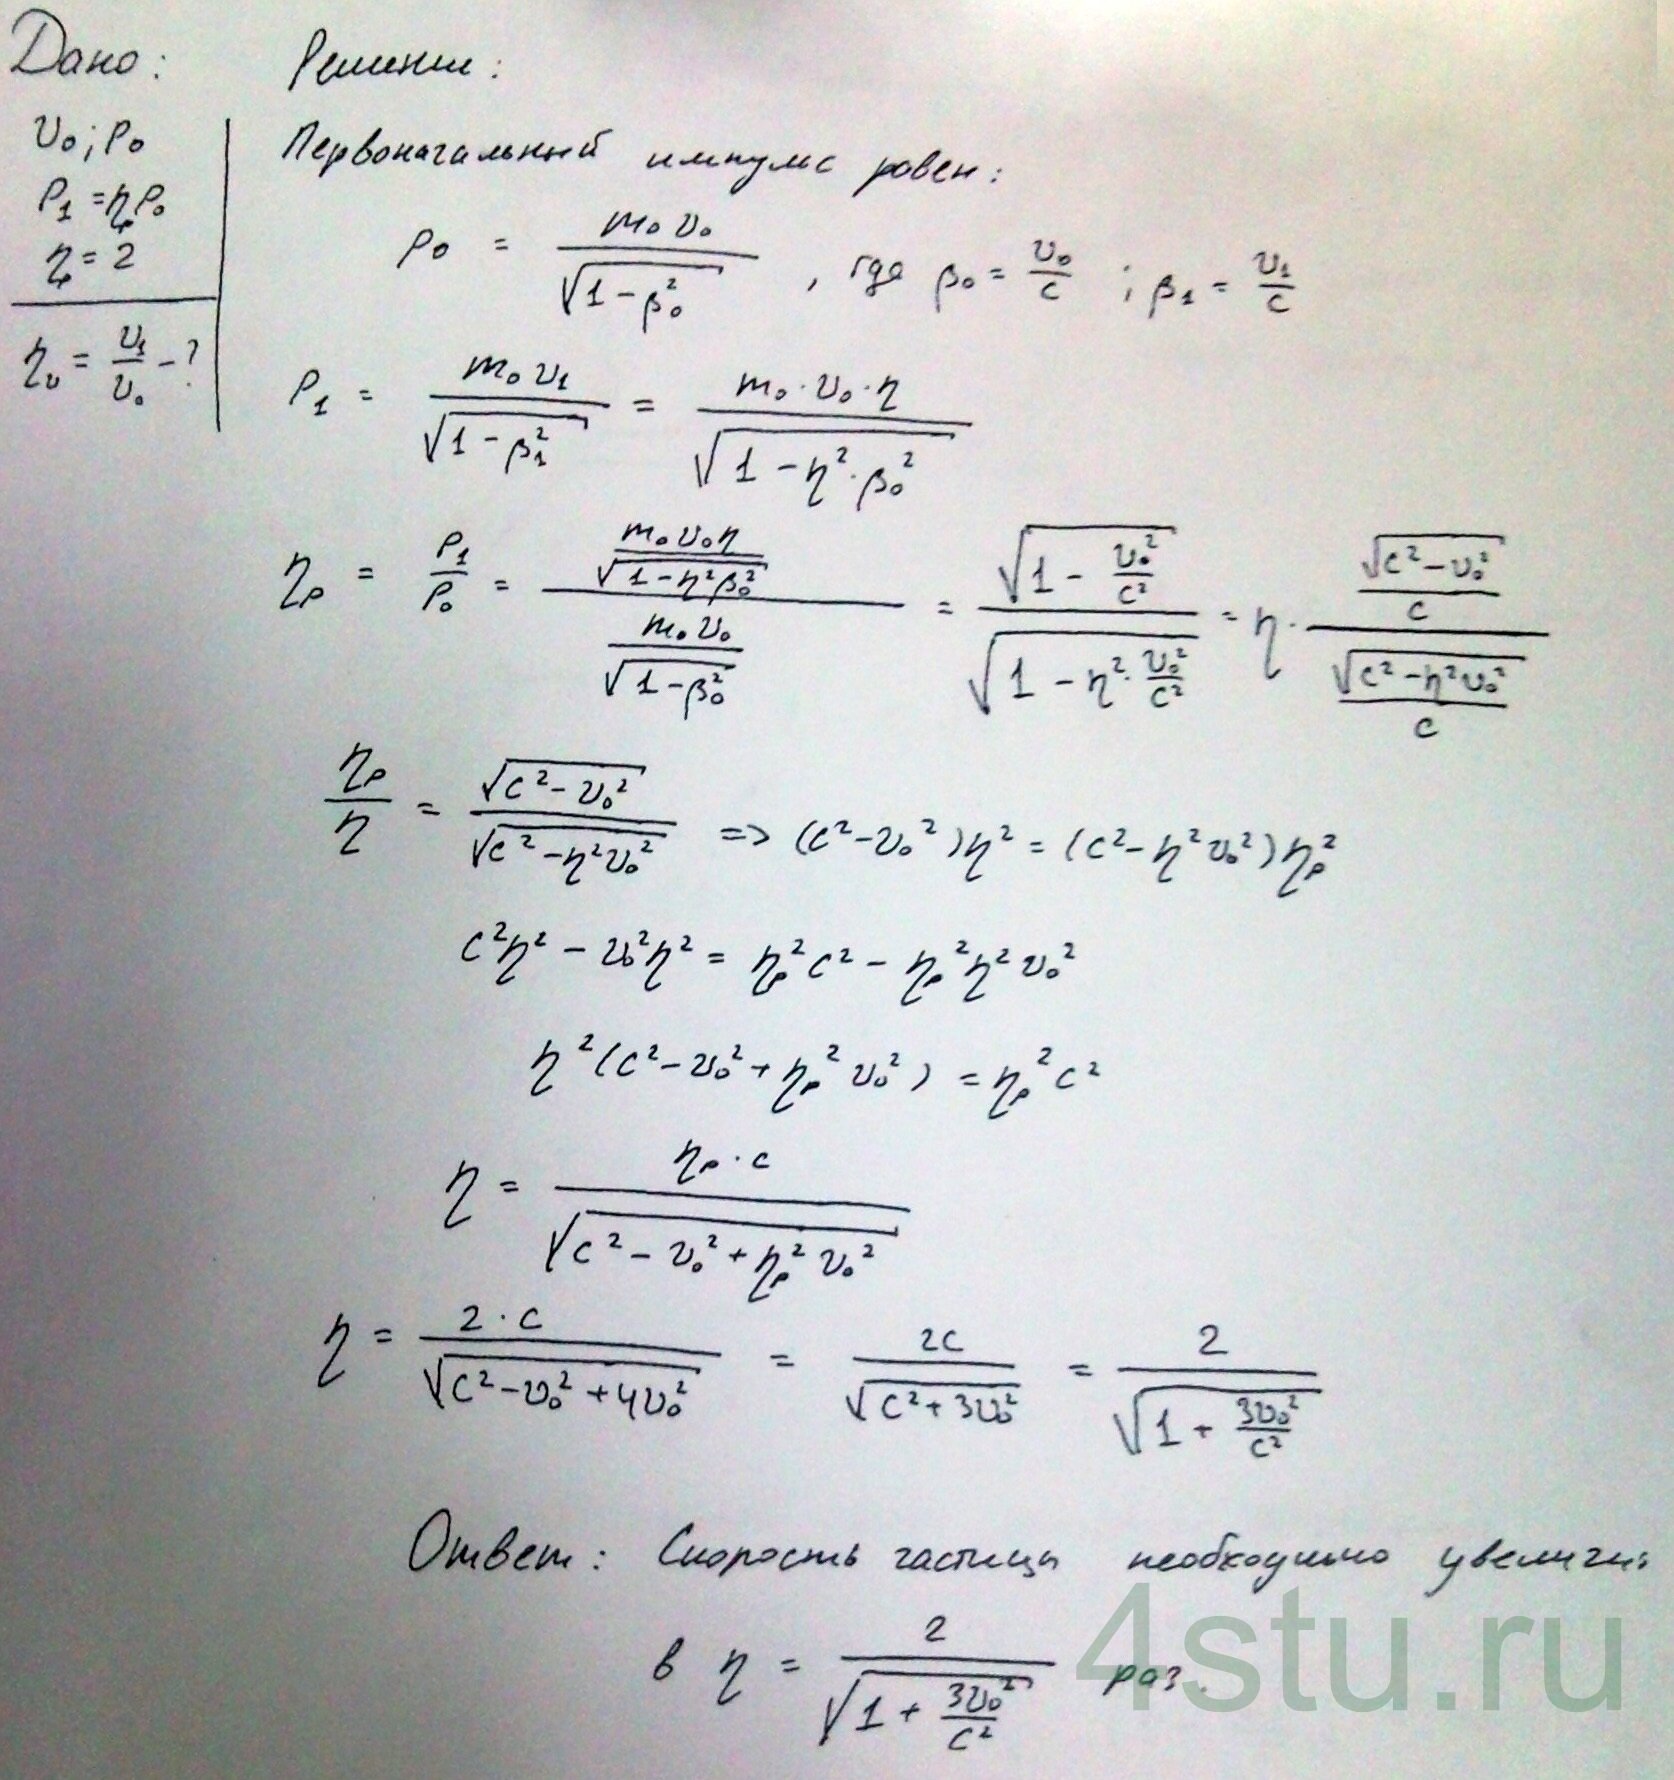 Дано:
υ₀; p₀
p₁ = ηₚp₀
ηₚ = 2
ηᵥ = υ₁/υ₀ - ?
Решение:
Первоначальный импульс равен:
p₀ = m₀υ₀/√(1-β₀²) , где β₀ = υ₀/c ; β₁ = υ₁/c
p₁ = m₀υ₁/√(1-β₁²) = m₀·υ₀·η/√(1-η²·β₀²)
ηₚ = p₁/p₀ = (m₀υ₀η/√(1-η²β₀²))/(m₀υ₀/√(1-β₀²)) = √(1-υ₀²/c²)/√(1-η²·υ₀²/c²) = η·(√(c²-υ₀²)/c)/(√(c²-η²υ₀²)/c)
ηₚ/η = √(c²-υ₀²)/√(c²-η²υ₀²) => (c²-υ₀²)η² = (c²-η²υ₀²)ηₚ²
c²η² - υ₀²η² = ηₚ²c² - ηₚ²η²υ₀²
η²(c²-υ₀²+ηₚ²υ₀²) = ηₚ²c²
η = ηₚ·c/√(c²-υ₀²+ηₚ²υ₀²)
η = 2·c/√(c²-υ₀²+4υ₀²) = 2c/√(c²+3υ₀²) = 2/√(1+3υ₀²/c²)
Ответ: Скорость частицы необходимо увеличи
в η = 2/√(1+3υ₀²/c²) раз.
4stu.ru